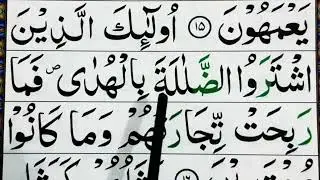 يَعْمَهُوْنَ ۝۱۵ اُولٰٓئِكَ الَّذِيْنَ
اشْتَرَوُا الضَّلٰلَةَ بِالْهُدٰى ۪ فَمَا
رَبِحَتْ تِّجَارَتُهُمْ وَمَا كَانُوْا